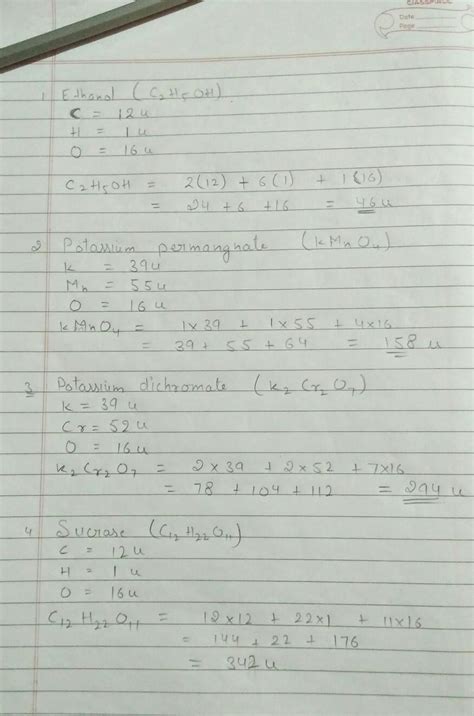 CLASSMATE
Date
Page
1 Ethanol (C2H5OH)
C = 12u
H = 1u
O = 16u
C2H5OH = 2(12) + 6(1) + 1(16)
= 24 + 6 + 16 = 46u
2 Potassium permangnate (KMnO4)
K = 39u
Mn = 55u
O = 16u
KMnO4 = 1x39 + 1x55 + 4x16
= 39 + 55 + 64 = 158 u
3 Potassium dichromate (K2Cr2O7)
K = 39 u
Cr = 52u
O = 16u
K2Cr2O7 = 2x39 + 2x52 + 7x16
= 78 + 104 + 112 = 294u
4 Sucrase (C12H22O11)
C = 12u
H = 1 u
O = 16u
C12H22O11 = 12x12 + 22x1 + 11x16
= 144 + 22 + 176
= 342u